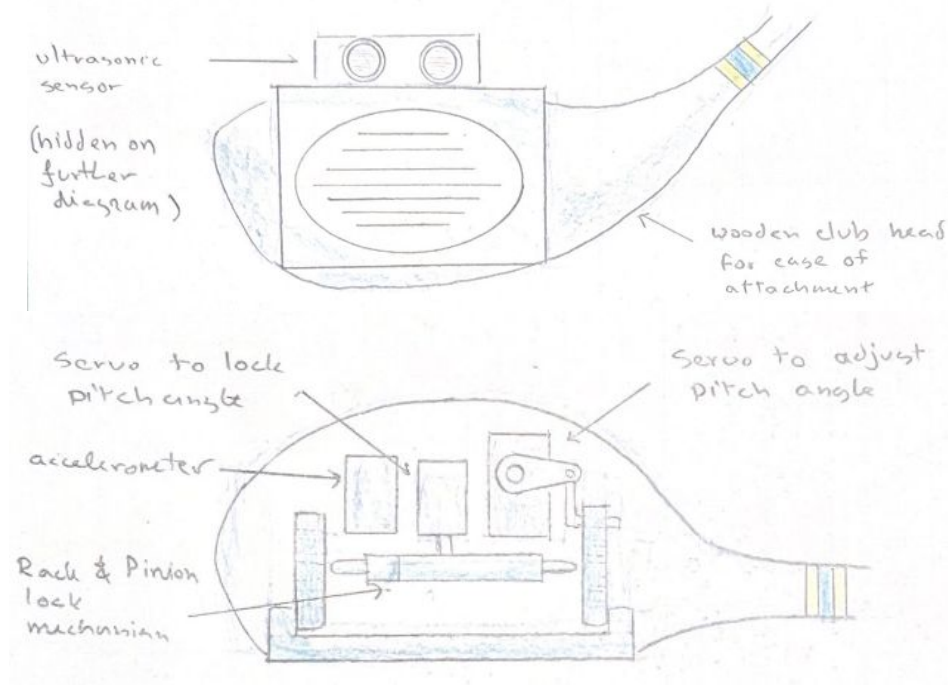 ultrasonic
sensor
(hidden on
further
diagram)
wooden club head
for ease of
attachment
Servo to lock
pitch angle
Servo to adjust
pitch angle
accelerometer
Rack & Pinion
lock
mechanism